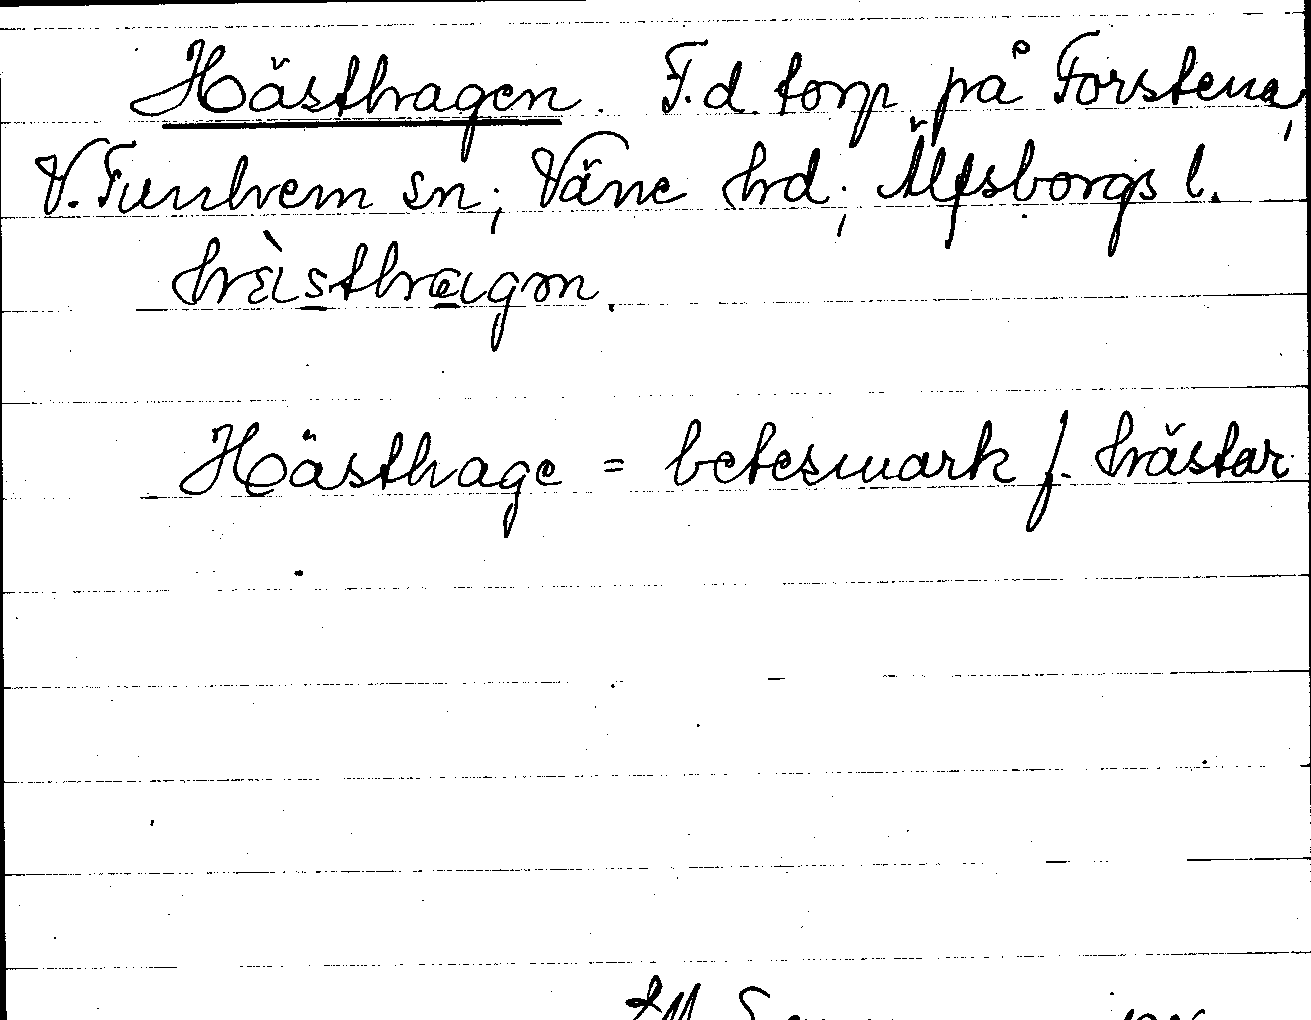 Hästhagen. F.d. torp på Forstena,
V. Tunhem sn; Väne hd; Älfsborgs l.
hä̀sthagən.
Hästhage = betesmark f. hästar